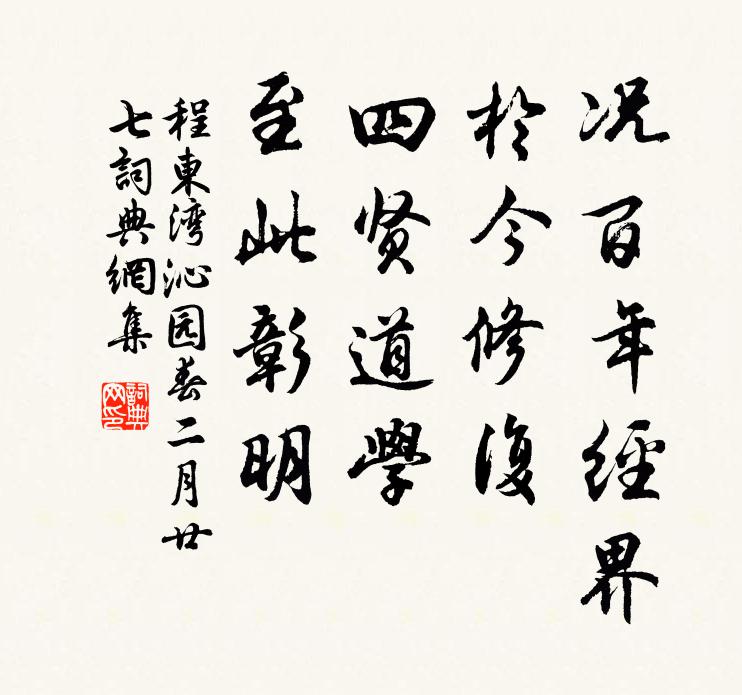 况百年經界
於今修復
四贤道學
至此彰明
程東湾沁园春二月廿
七詞典網集
詞典
网印